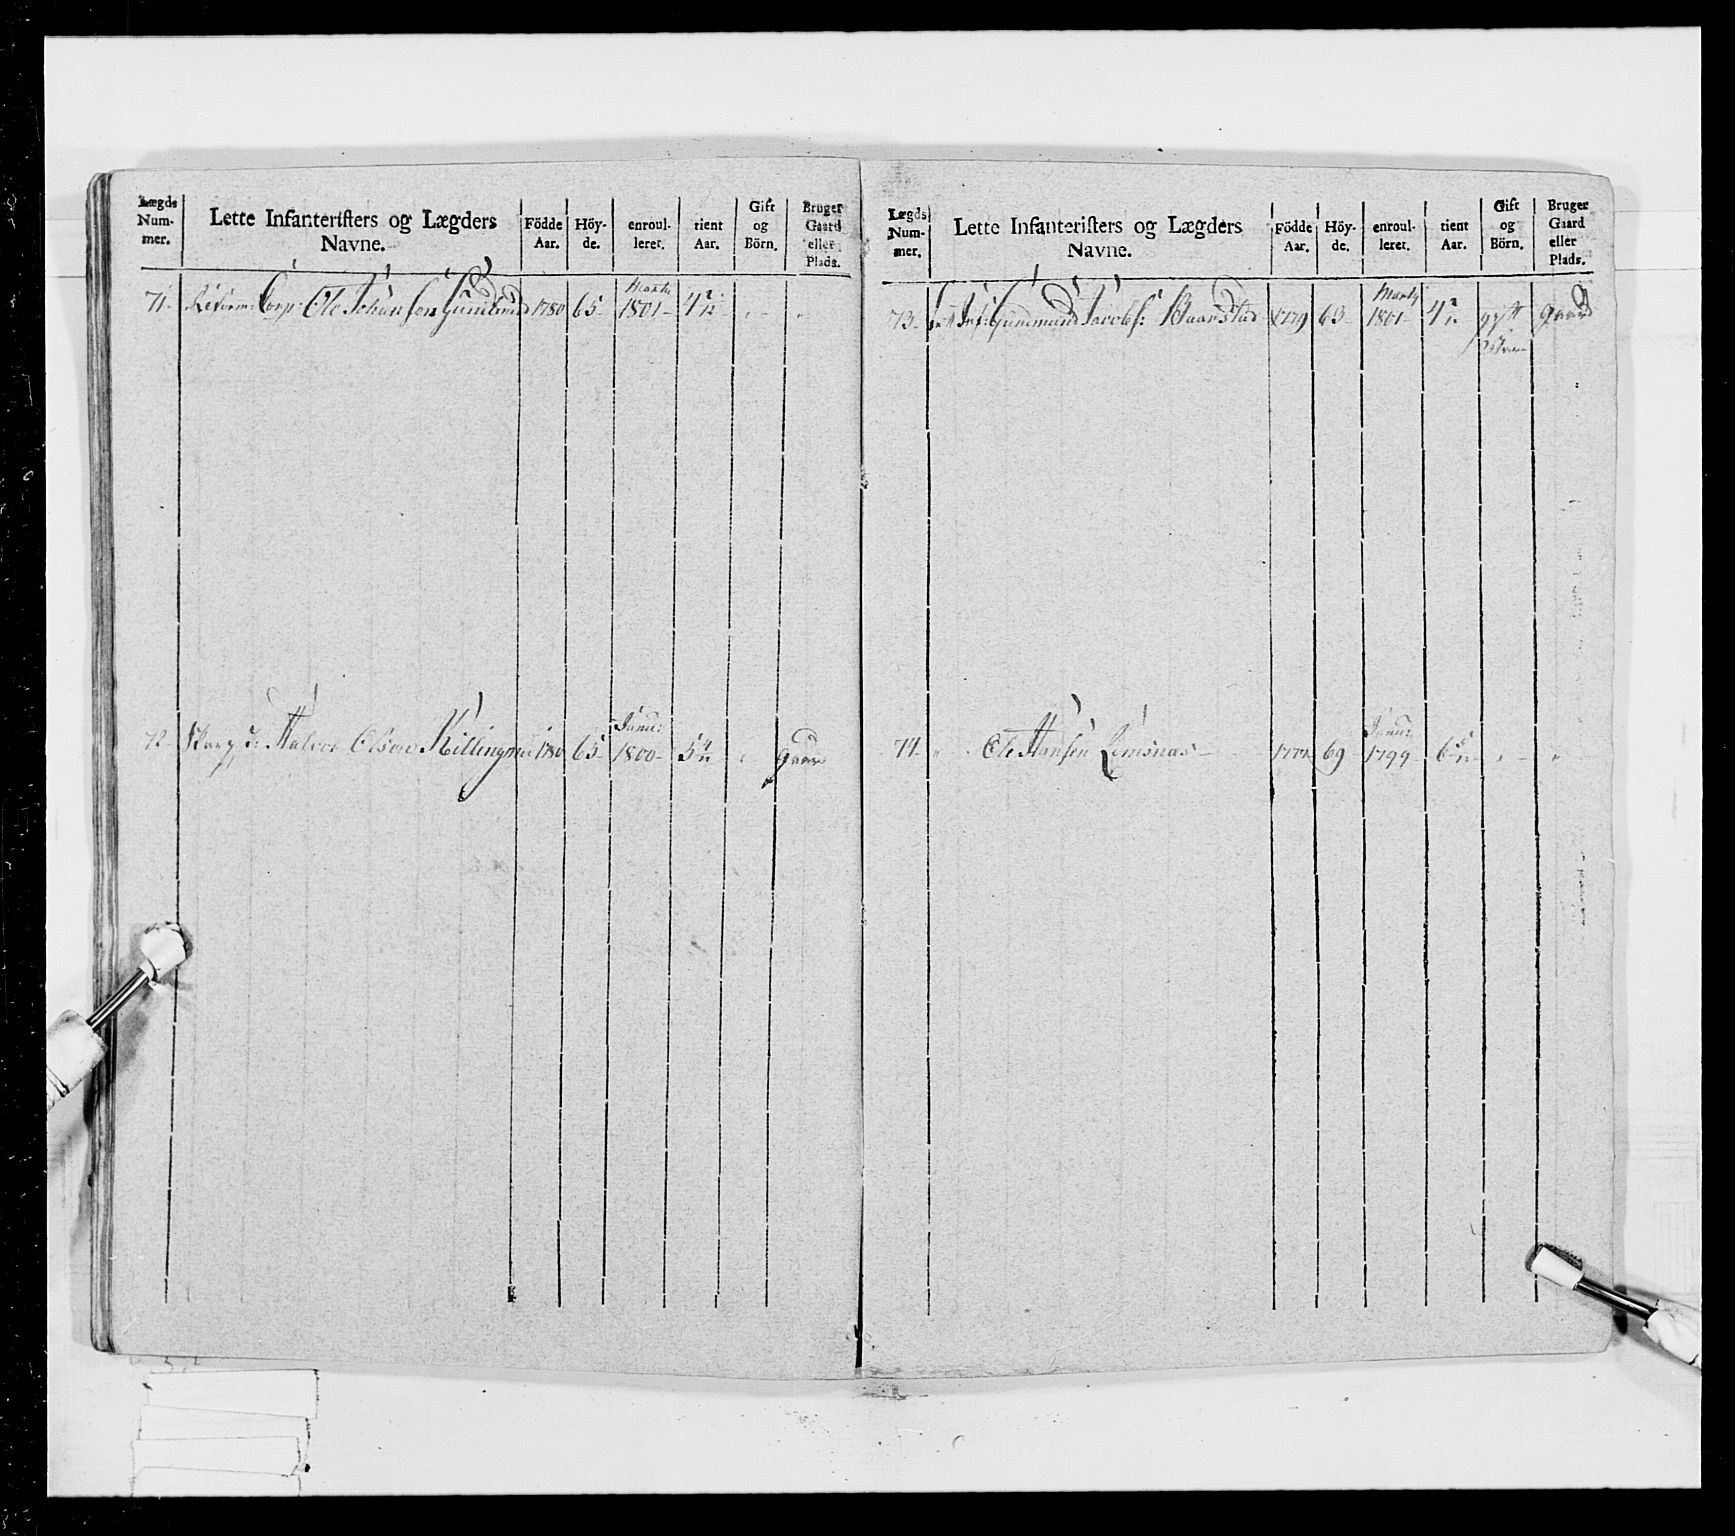 Lægds Num- mer. Lette Infanteristers og Lægders Navne. Födde Aar. Höy- de. enroul- leret. tient Aar. Gift og Börn. Bruger Gaard eller Plads.
71. Reform: Corp: Ole Johansen 1780 65- Marty 1801- 4 2/12 " "
72- Skarp J: Halvor Olsen 1780 65- Janu: 1800- 5 4/12 " Gaard
Lægds Num- mer. Lette Infanteristers og Lægders Navne. Födde Aar. Höy- de. enroul- leret. tient Aar. Gift og Börn. Bruger Gaard eller Plads.
73- Inf: Gudmund Jacobs: Baardstad 1779 63- Marty 1801- 4 2/12 gift Gaard
74- " Ole Hansen 69- Janu: 1799- 6 5/12 " "